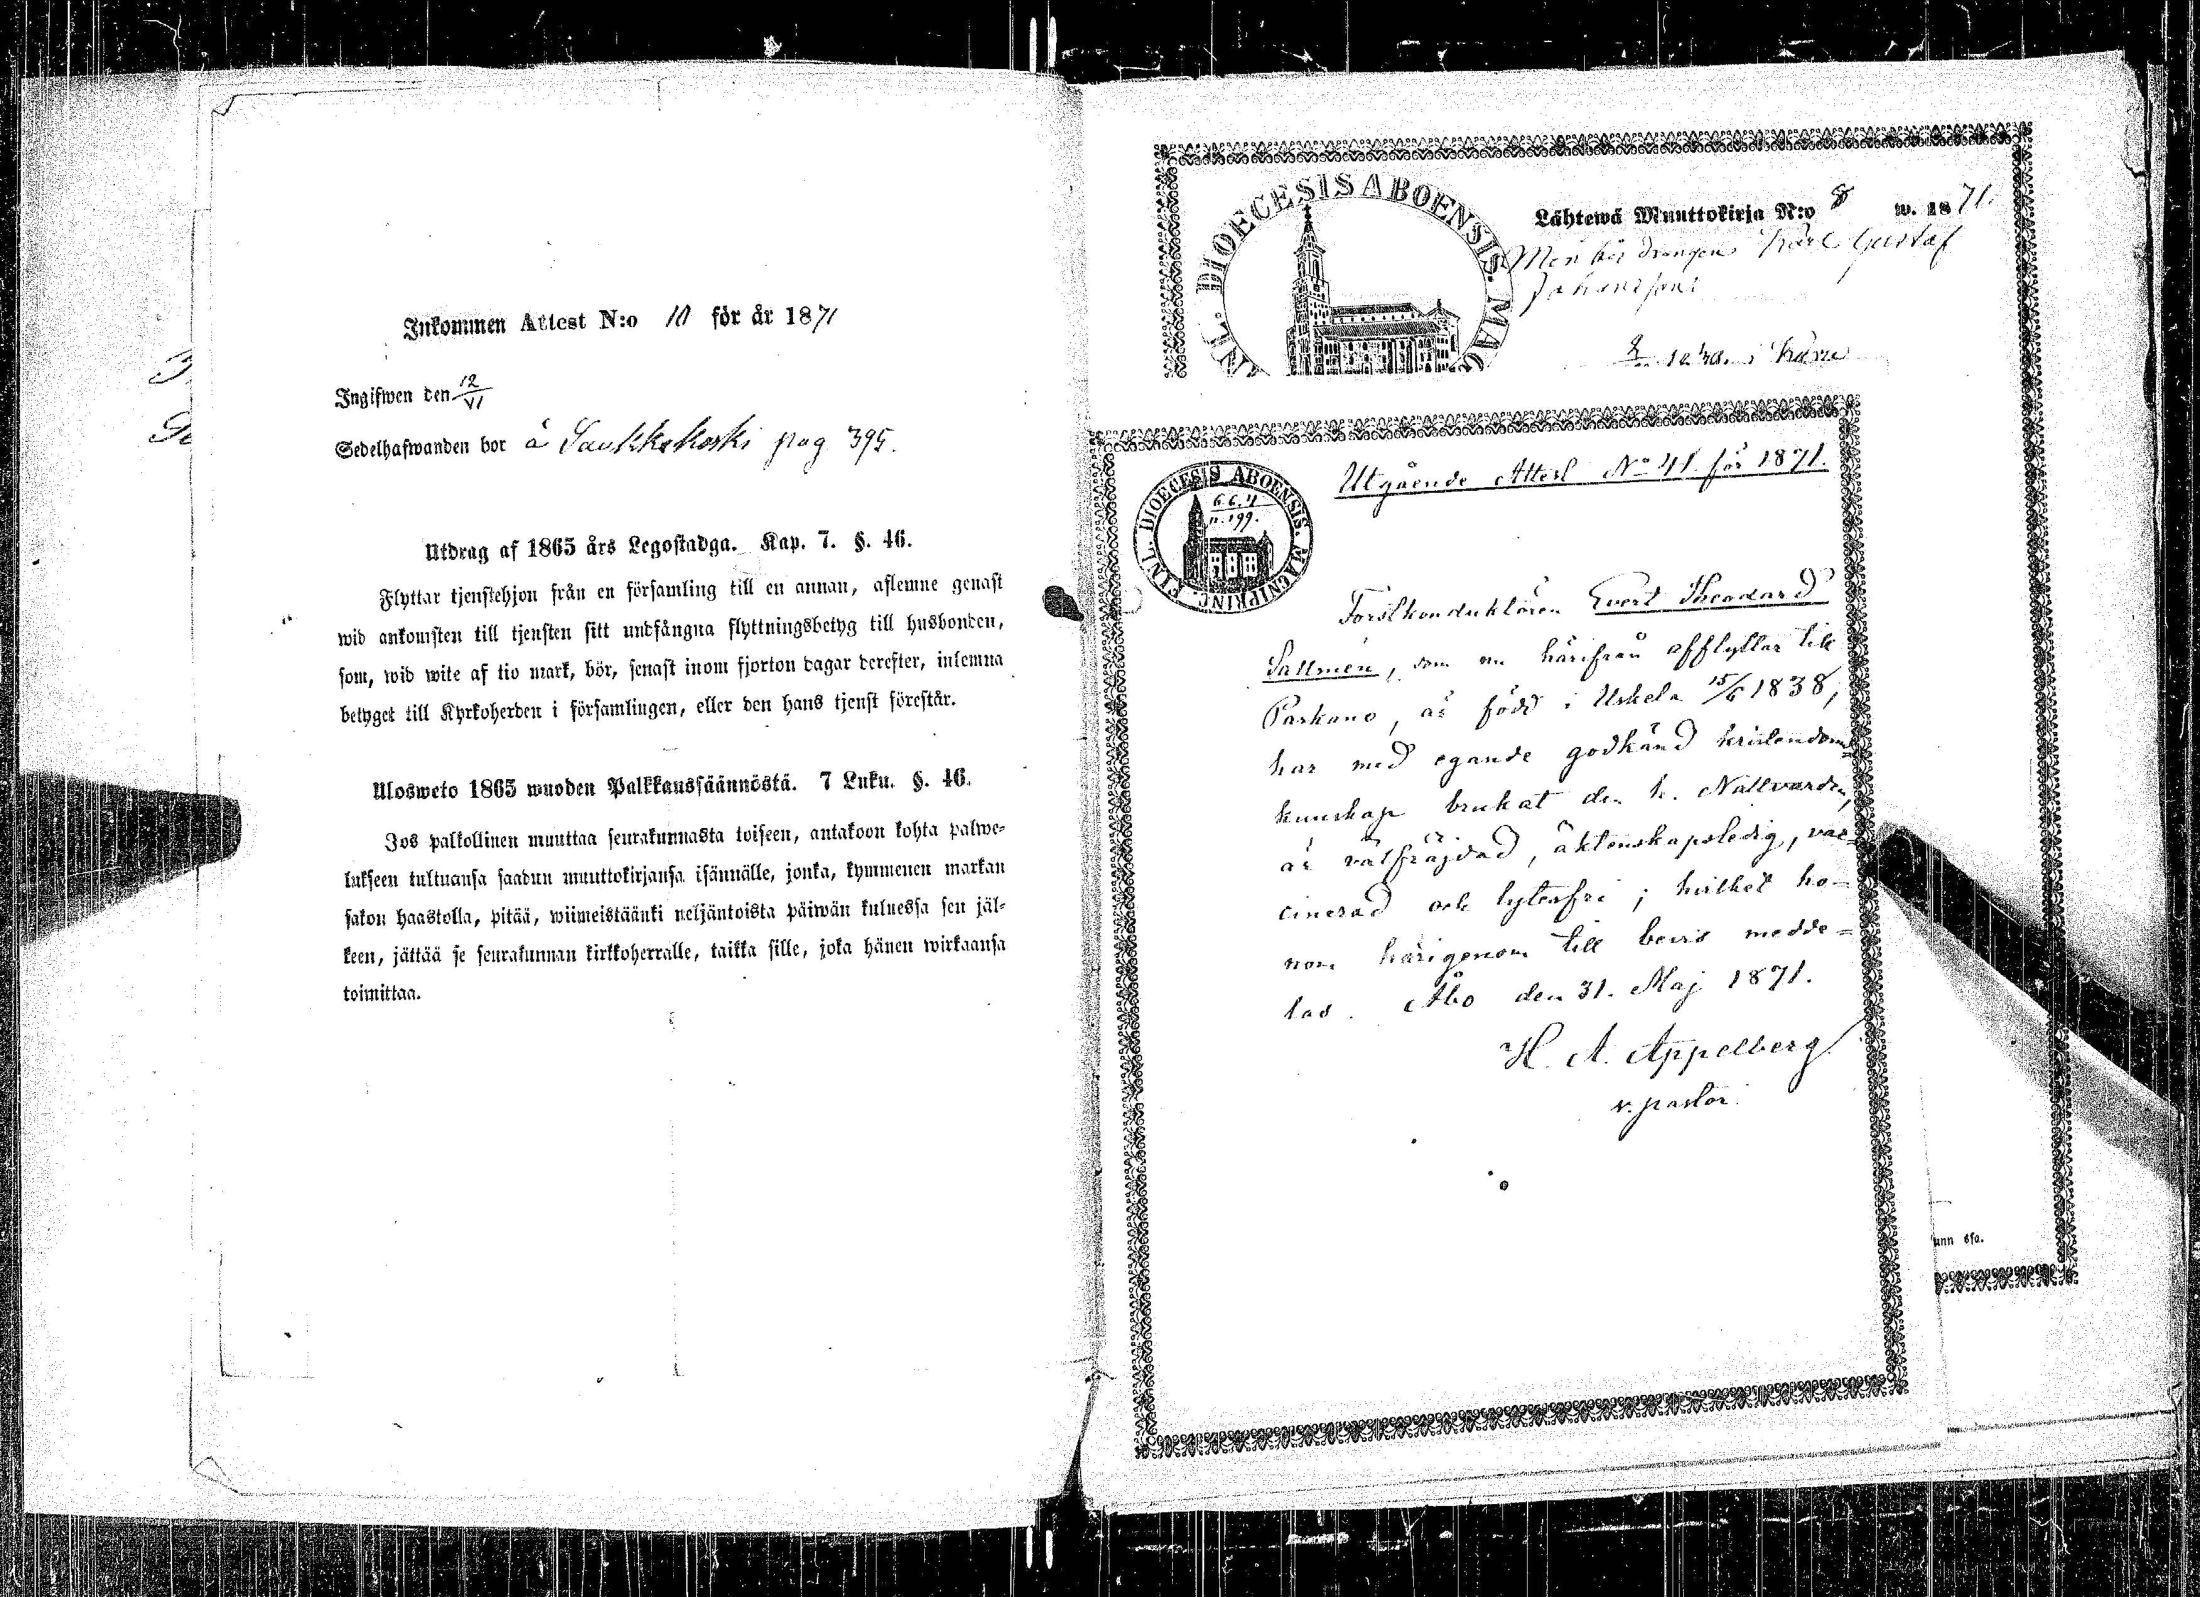 Inkommen Attest N:o 10 för år 1871
Ingifwen den 12/VI
Sedelhafwanden bor å Saukkokoski pag 395.
Utdrag af 1865 års Legostadga. Kap. 7. §. 46.
Flyttar tjenstehjon från en församling till en annan, aflemne genast
wid ankomsten till tjensten sitt undfångna flyttningsbetyg till husbonden,
som, wid wite af tio mark, bör, senast inom fjorton dagar derefter, inlemna
betyget till Kyrkoherden i församlingen, eller den hans tjenst förestår.
Ulosweto 1865 wuoden Palkkaussäännöstä. 7 Luku. §. 46.
Jos palkollinen muuttaa seurakunnasta toiseen, antakoon kohta palwe-
lukseen tultuansa saadun muuttokirjansa isännälle, jonka, kymmenen markan
sakon haastolla, pitää, wiimeistäänki neljäntoista päiwän kuluessa sen jäl-
keen, jättää se seurakunnan kirkkoherralle, taikka sille, joka hänen wirkaansa
toimittaa.
DIOECESIS ABOENSIS. MAG
Lähtewä Muuttokirja N:o 8 w. 1871.
drängen Karl Gustaf
Johansson
DIOECESIS ABOENSIS. MAGNIPRINC. FINL.
6.6.71
n. 199.
Utgående Attest No 41. för 1871.
Forstkonduktören Evert Theodord
Sallmén, som nu härifrån afflyttar till
Parkano, är född i Uskela 15/6 1838,
har med egande godkänd kristendoms
kunskap brukat den h. Nattvarden,
är välfräjdad, äktenskapsledig, vac-
cinerad och lytesfri; hvilket ho-
nom härigenom till bevis medde-
las. Åbo den 31. Maj 1871.
H. A. Appelberg.
v. pastor.